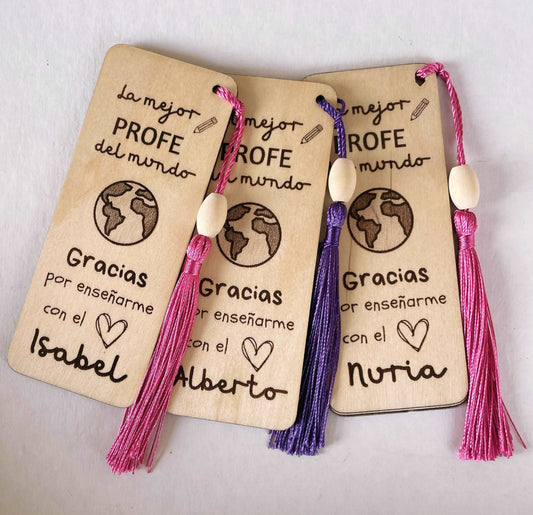 La mejor
PROFE
del mundo
Gracias
por enseñarme
con el
Isabel
mejor
PROFE
mundo
Gracias
por enseñarme
con el
Alberto
mejor
PROFE
mundo
Gracias
por enseñarme
con el
Nuria